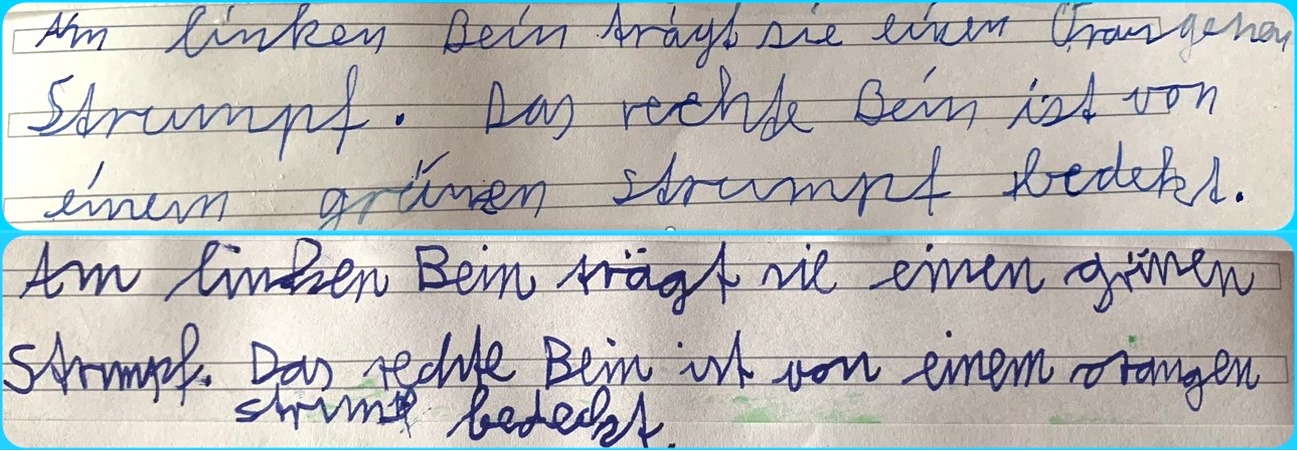 Am linken Bein trägt sie einen Orangenen
Strumpf. Das rechte Bein ist von
einem grünen strumpf bedekt.
Am linken Bein trägt sie einen grünen
Strmpf. Das rechte Bein ist von einem orangen
bedeckt.